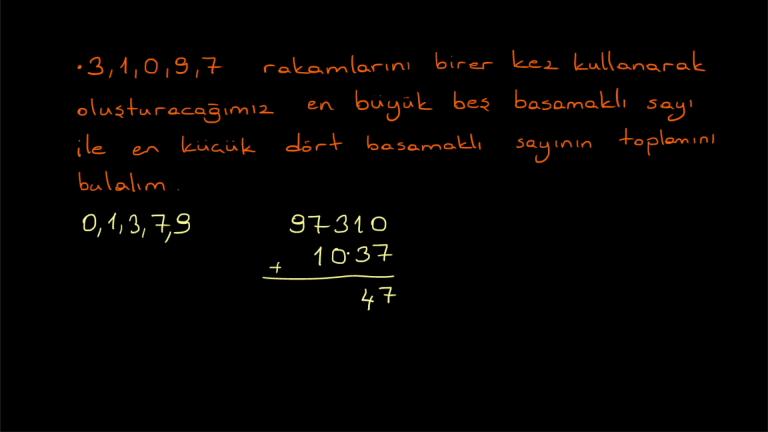 • 3, 1, 0, 9, 7 rakamlarını birer kez kullanarak
oluşturacağımız en büyük beş basamaklı sayı
ile en küçük dört basamaklı sayının toplamını
bulalım.
0, 1, 3, 7, 9
97310
+ 1037
47